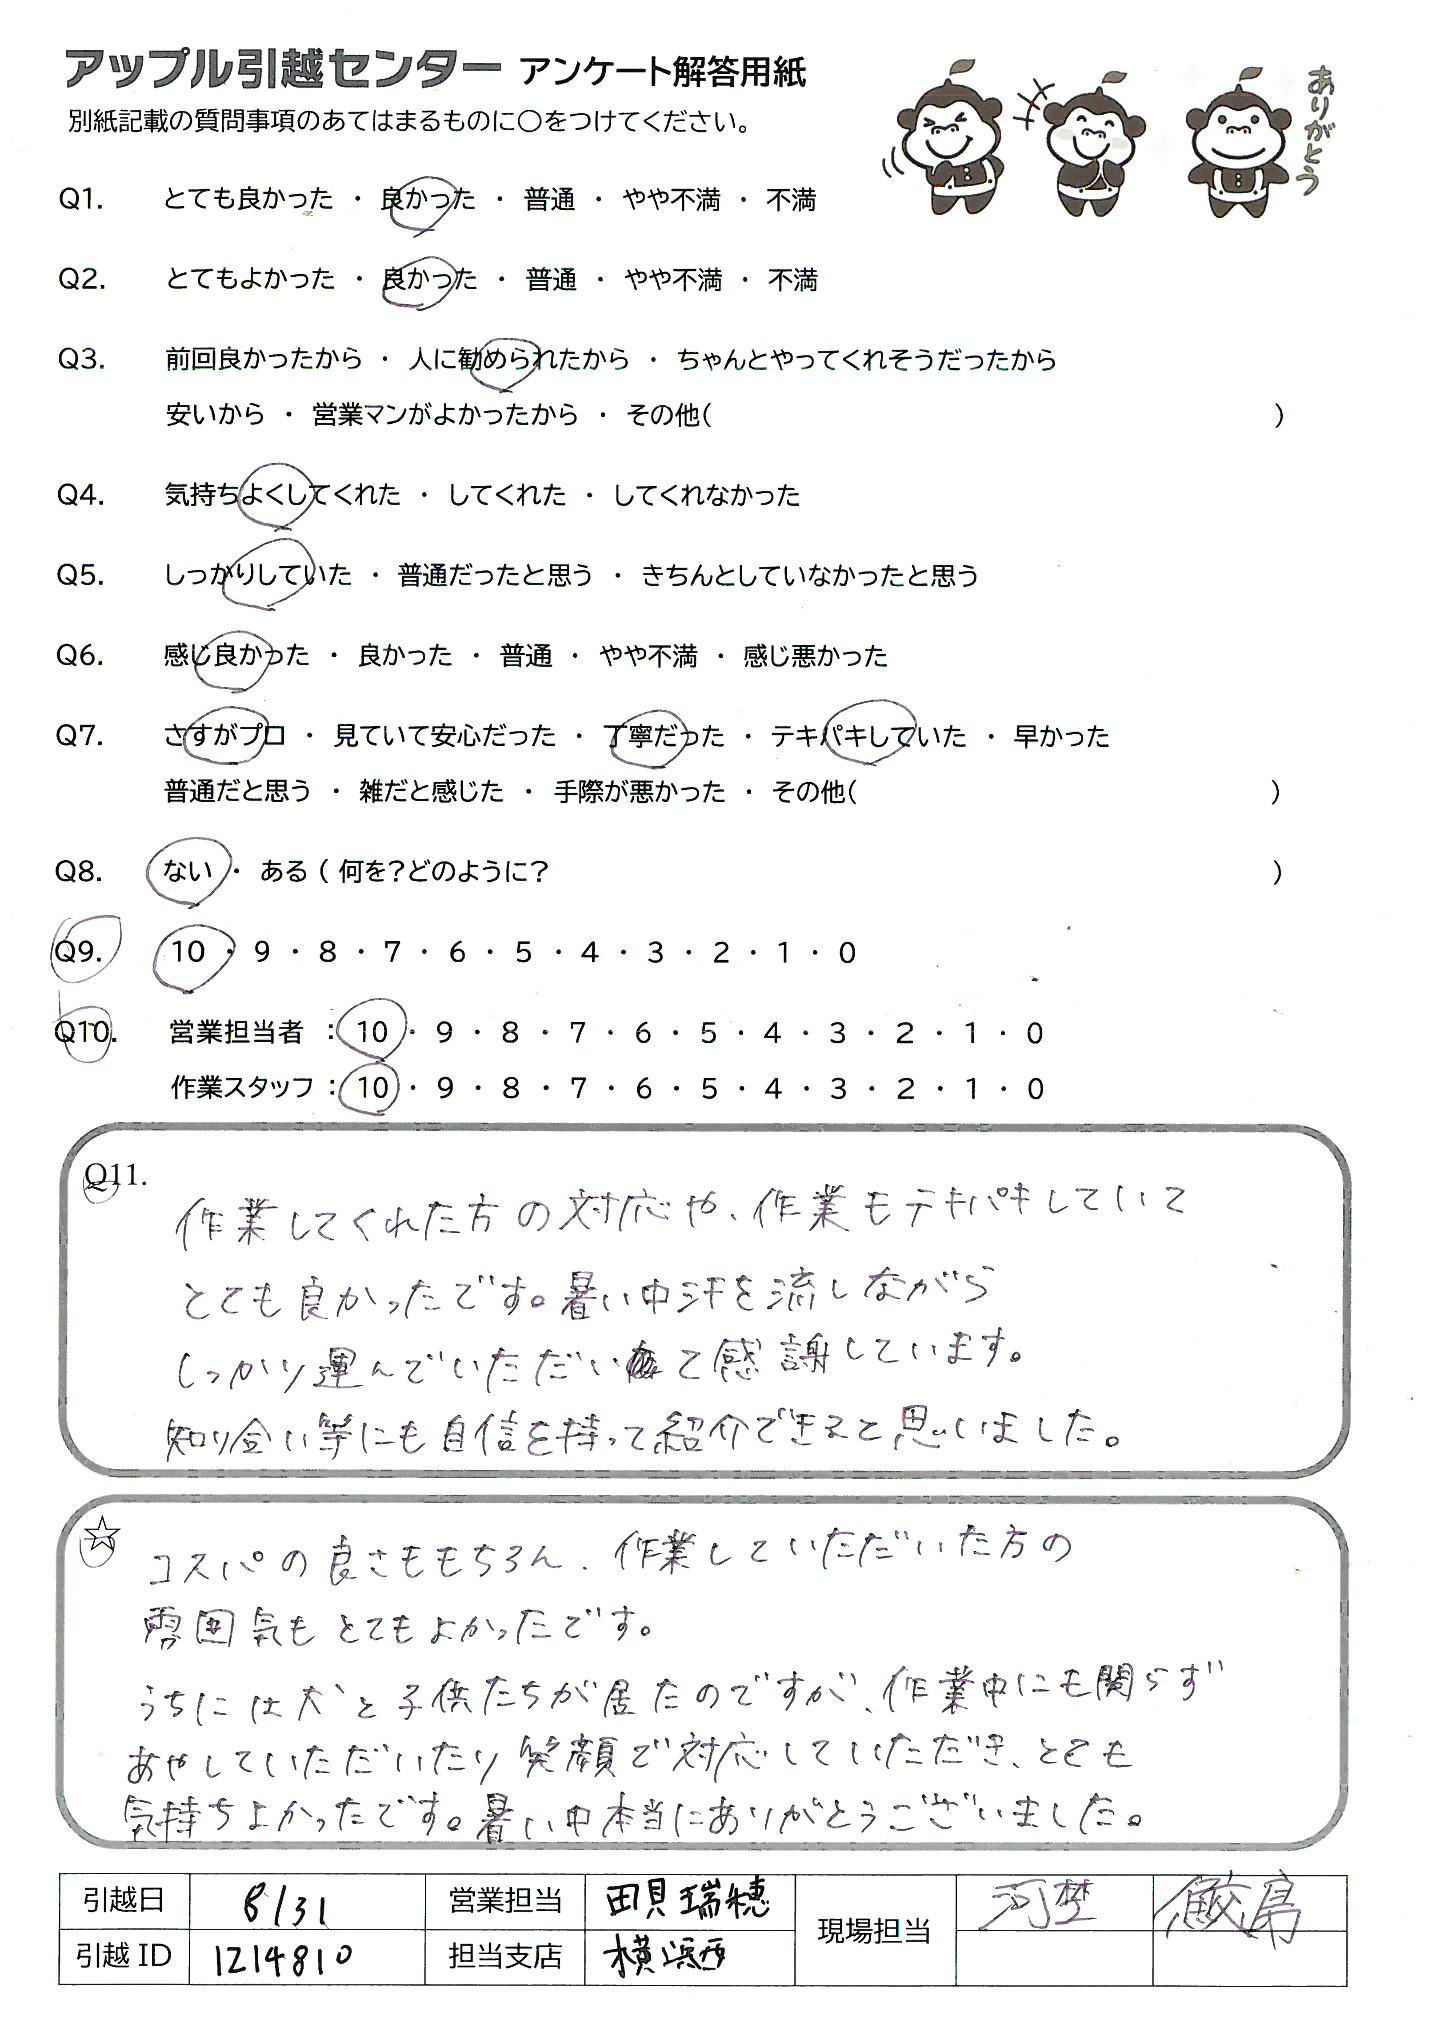 アップル引越センター アンケート解答用紙
ありがとう
別紙記載の質問事項のあてはまるものに〇をつけてください。
Q1. とても良かった ・ 良かった ・ 普通 ・ やや不満 ・ 不満
Q2. とてもよかった ・ 良かった ・ 普通 ・ やや不満 ・ 不満
Q3. 前回良かったから ・ 人に勧められたから ・ ちゃんとやってくれそうだったから
安いから ・ 営業マンがよかったから ・ その他( )
Q4. 気持ちよくしてくれた ・ してくれた ・ してくれなかった
Q5. しっかりしていた ・ 普通だったと思う ・ きちんとしていなかったと思う
Q6. 感じ良かった ・ 良かった ・ 普通 ・ やや不満 ・ 感じ悪かった
Q7. さすがプロ ・ 見ていて安心だった ・ 丁寧だった ・ テキパキしていた ・ 早かった
普通だと思う ・ 雑だと感じた ・ 手際が悪かった ・ その他( )
Q8. ない ・ ある ( 何を?どのように? )
Q9. 10 ・ 9 ・ 8 ・ 7 ・ 6 ・ 5 ・ 4 ・ 3 ・ 2 ・ 1 ・ 0
Q10. 営業担当者 : 10 ・ 9 ・ 8 ・ 7 ・ 6 ・ 5 ・ 4 ・ 3 ・ 2 ・ 1 ・ 0
作業スタッフ : 10 ・ 9 ・ 8 ・ 7 ・ 6 ・ 5 ・ 4 ・ 3 ・ 2 ・ 1 ・ 0
Q11.
作業してくれた方の対応や、作業もテキパキしていて
とても良かったです。暑い中汗を流しながら
しっかり運んでいただいて感謝しています。
知り合い等にも自信を持って紹介できると思いました。
☆
コスパの良さももちろん、作業していただいた方の
雰囲気もとてもよかったです。
うちには犬と子供たちが居たのですが、作業中にも関らず
あやしていただいたり笑顔で対応していただき、とても
気持ちよかったです。暑い中本当にありがとうございました。
引越日 8/31 営業担当 田貝瑞穂 現場担当 河埜 鮫島
引越ID 1214810 担当支店 横浜西